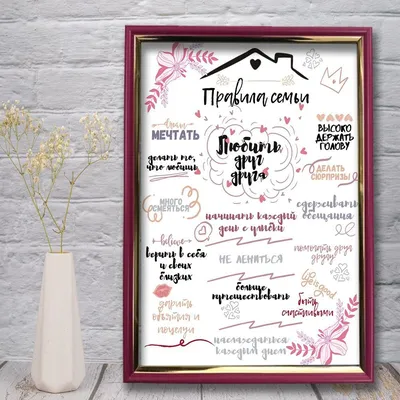 Правила семьи
МЕЧТАТЬ
Любить
друг
друга
ВЫСОКО
ДЕРЖАТЬ
ГОЛОВУ
делать то,
что любишь
ДЕЛАТЬ
СЮРПРИЗЫ
МНОГО
СМЕЯТЬСЯ
сдерживать
обещания
начинать каждый
день с улыбки
believe
верить в себя
и своих
близких
НЕ ЛЕНИТЬСЯ
помогать друг
другу
больше
путешествовать
life is good
дарить
объятия и
поцелуи
быть
счастливыми
наслаждаться
каждым днем